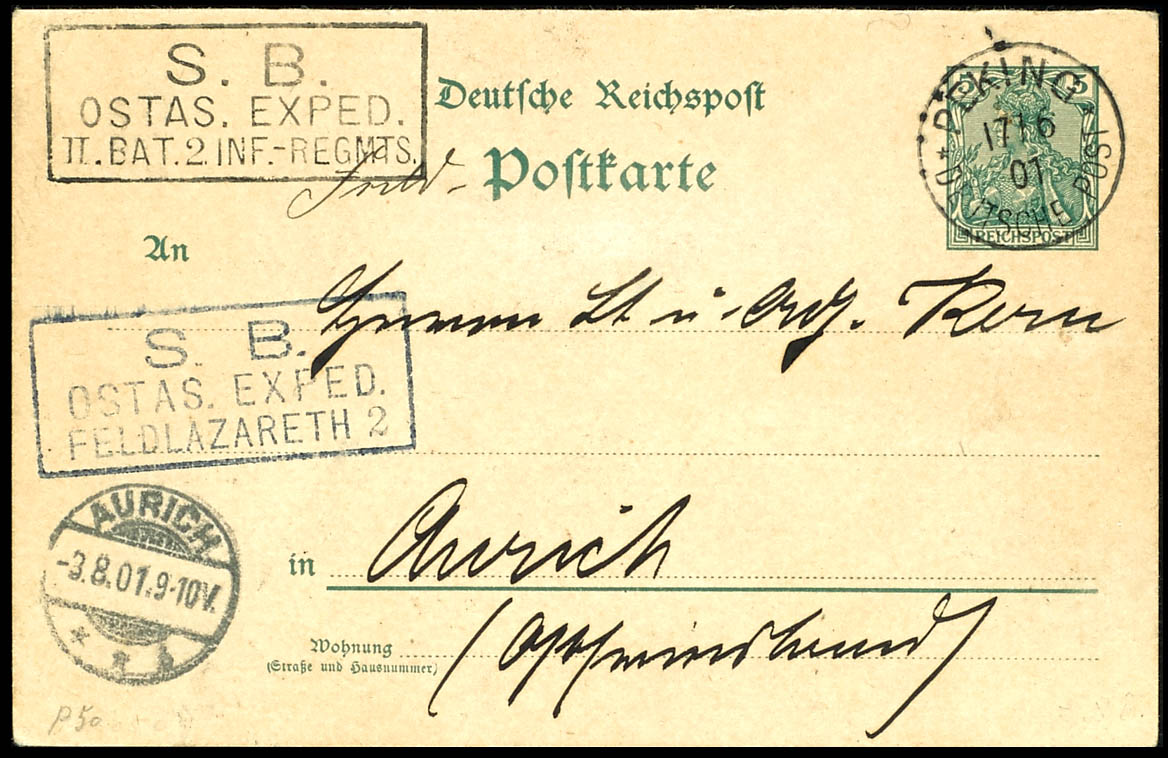 S. B.
OSTAS. EXPED.
II. BAT. 2. INF.-REGMTS.
Deutsche Reichspost
Feld-Postkarte
PEKING
17/6
01
* DEUTSCHE POST
5
REICHSPOST
An
Herrn Lt u. Adj. Kern
S. B.
OSTAS. EXPED.
FELDLAZARETH 2
in Aurich
AURICH
-3.8.01.9-10V.
* a
Wohnung
(Straße und Hausnummer)
(Ostfriesland)
P 5a